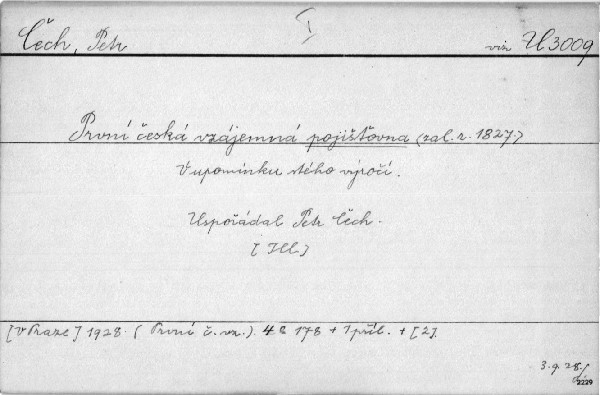 Čech, Petr
I
viz U 3009
První česká vzájemná pojišťovna (zal. r. 1827.)
V upomínku stého výročí.
Uspořádal Petr Čech.
[Ill]
[V Praze] 1928. (První č. vz.). 4° 178 + 1 příl. + [2].
3.9.28.
2229